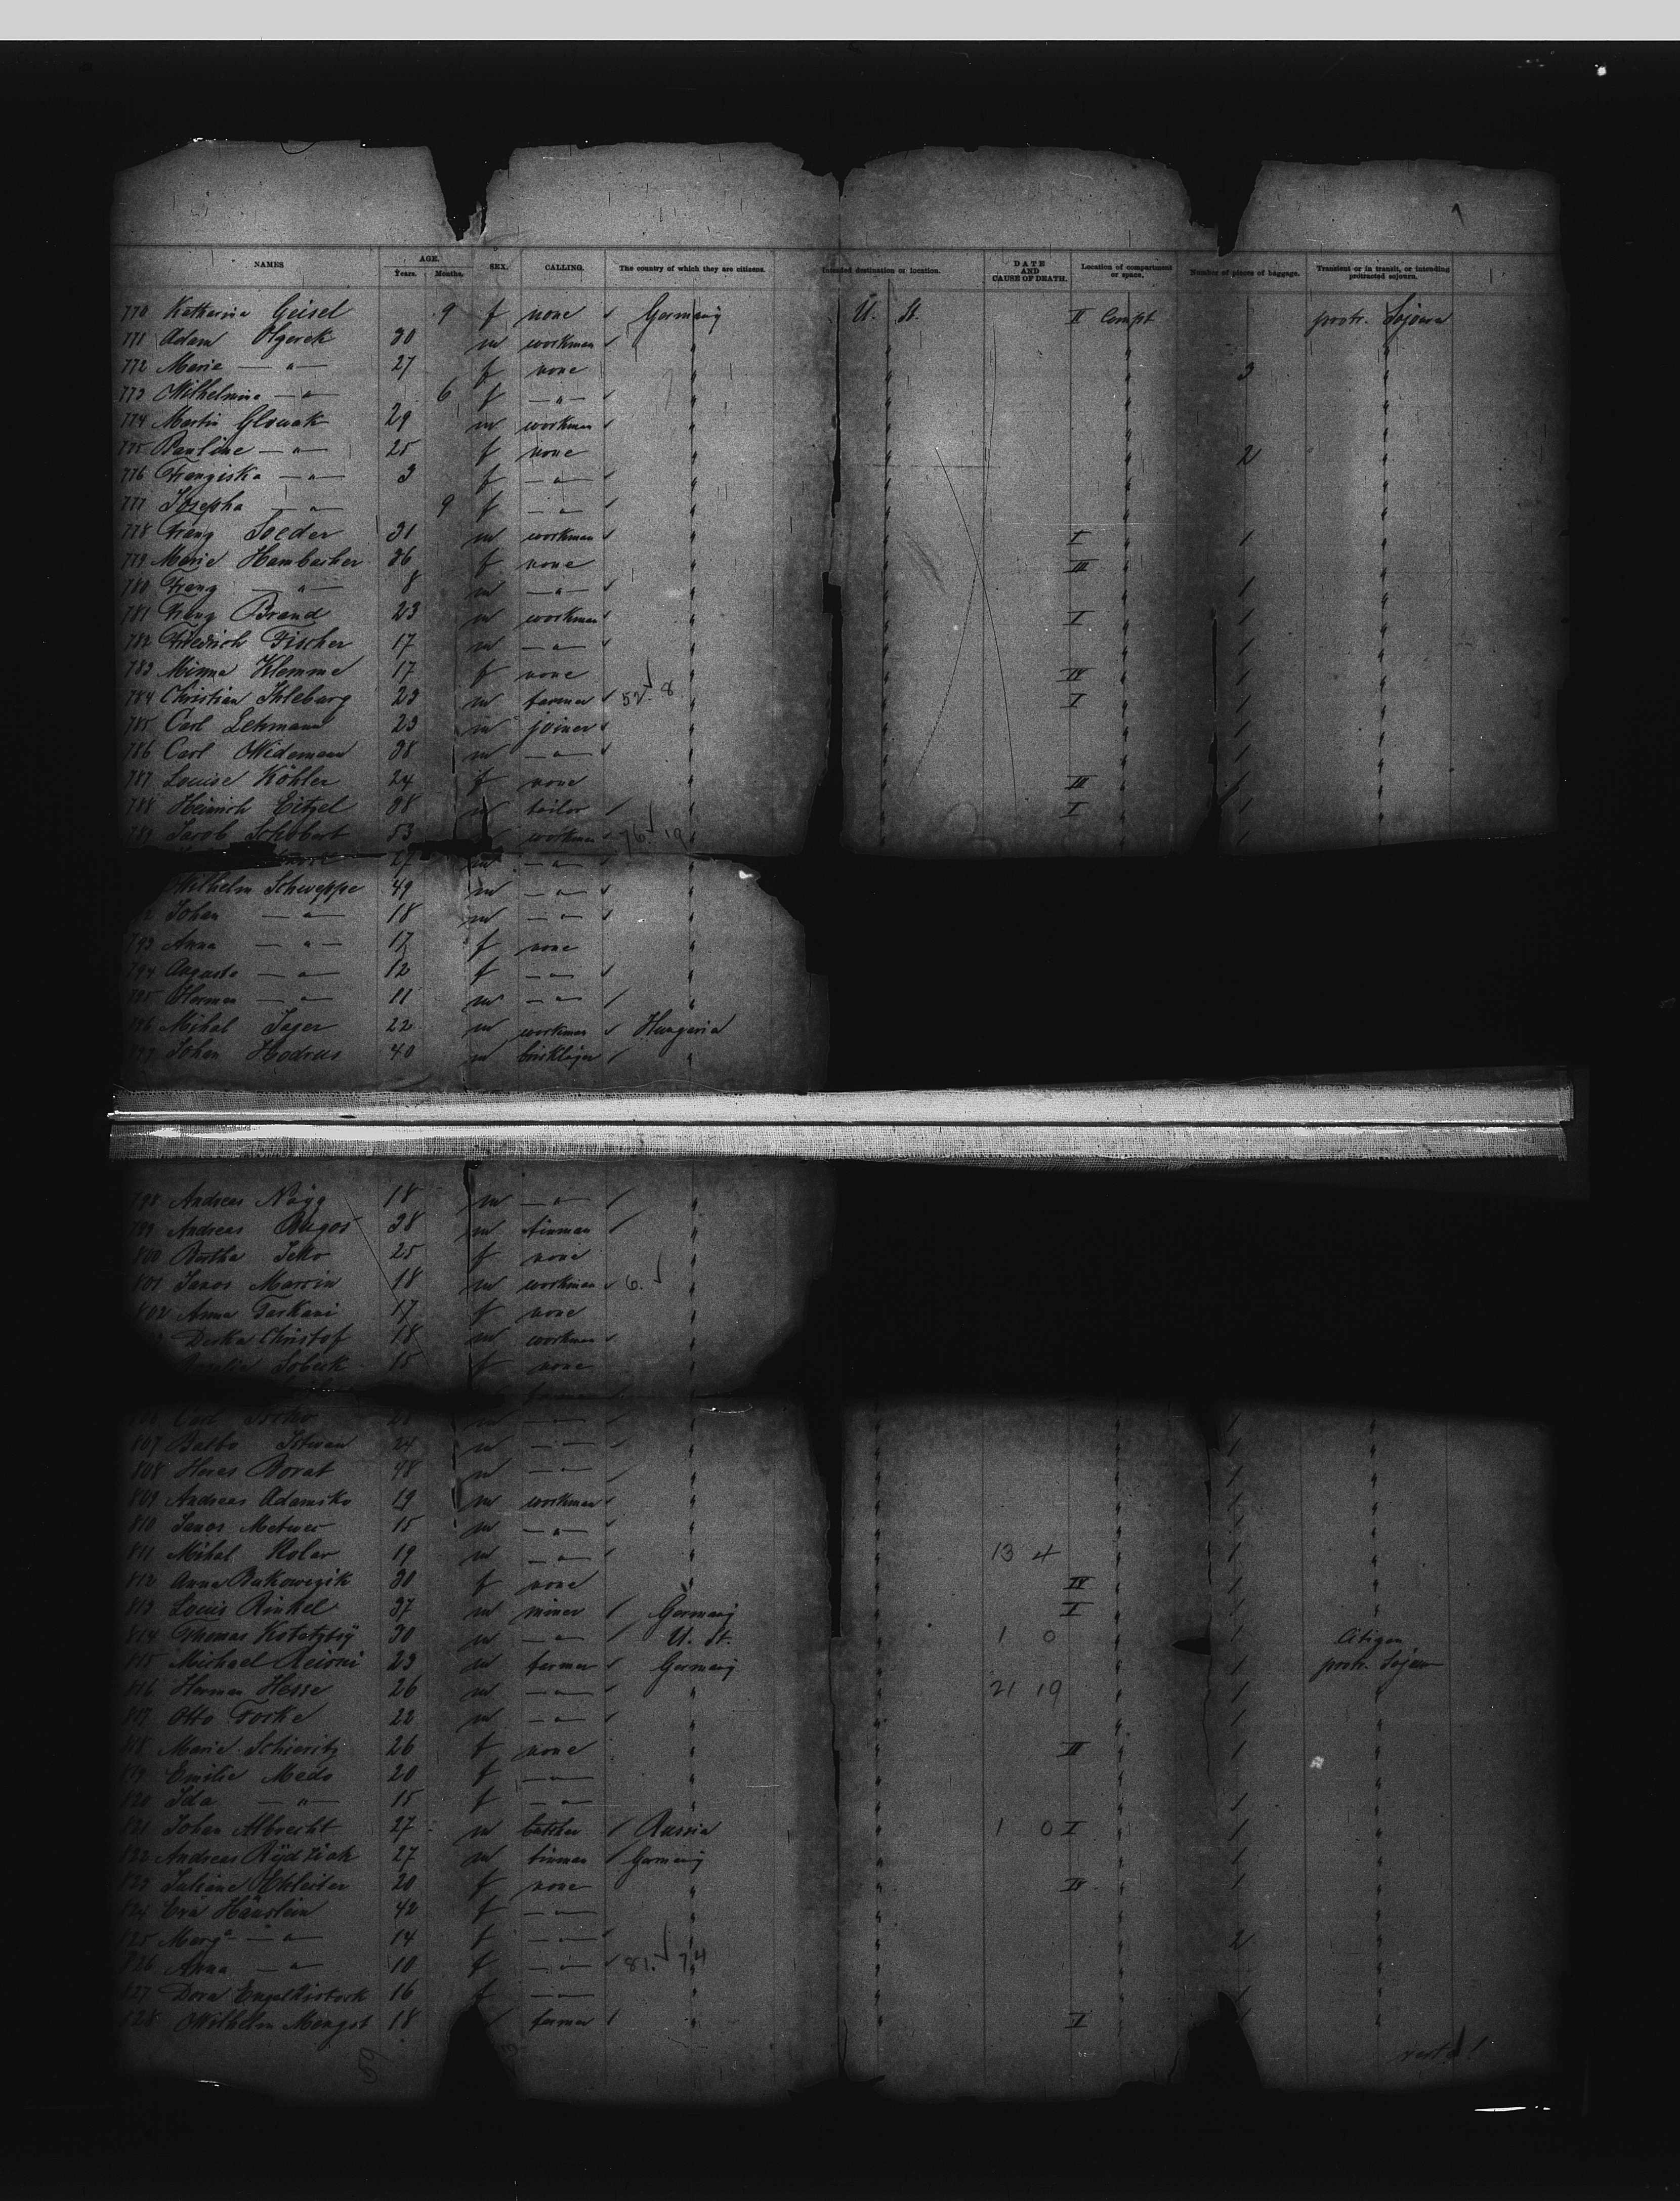 NAMES AGE. SEX. CALLING. The country of which they are citizens. Intended destination or location. DATE AND CAUSE OF DEATH. Location of compartment or space. Number of pieces of baggage. Transient or in transit, or intending protracted sojourn.
Years. Months.
770 Katharina Geisel 9 f none Germany U. St. II Compt protr. Sojourn
771 Adam 30 m workman
772 Marie — " — 27 f none 3
773 Wilhelmine — " — 6 f — " —
774 Martin Glowak 29 m workman
775 Pauline — " — 25 f none 2
776 Franziska — " — 3 f — " —
777 Josepha — " — 9 f — " —
778 Franz Soeder 31 m workman I 1
779 Marie Hambacher 36 f none III
780 Franz — " — 8 m — " — 1
781 Franz Brand 23 m workman I 1
782 Friedrich Fischer 17 m — " — 1
783 Minna Klemme 17 f none IV 1
784 Christian Ihleburg 23 m farmer 52. 8 I 1
785 Carl Lehmann 23 m joiner 1
786 Carl Widemann 38 m — " — 1
787 Louise Köhler 24 f none III 1
788 Heinrich Eitzel 38 m tailor I 1
789 Jacob Schobert 53 workman 76. 19
27 m — " —
Wilhelm Schweppe 49 m — " —
Johan — " — 18 m — " —
793 Anna — " — 17 f none
794 Auguste — " — 12 f — " —
795 Herman — " — 11 m — " —
796 Mihal Jager 22 m workman Hungaria
797 Johan Hodrus 40 m bricklayer
798 Andreas Nagy 18 m — " —
799 Andreas Bugos 38 m tinman
800 Bertha Jeko 25 f none
801 Janos Marcin 18 m workman 6.
802 Anna Tarkani 17 f none
Derka Christof 18 m workman
Sobeck 15 f none
806 Carl m — " — 1
807 Balbo Istwan 24 m — " — 1
808 Horat 48 m — " — 1
809 Andreas Adamsko 19 m workman 1
810 Janos Metwec 15 m — " — 1
811 Mihal Rolar 19 m — " — 13 4 1
812 Anna Bukowezik 30 f none IV 1
813 Louis Rinkel 37 m miner Germany I 1
814 Thomas 30 m — " — U. St. 1 0 1 Citizen
815 Michael 23 m farmer Germany 1 protr. Sojourn
816 Herman Hesse 26 m — " — 21 19 1
817 Otto Forke 22 m — " — 1
818 Marie Schieritz 26 f none II 1
819 Emilie Medo 20 f — " —
820 Ida — " — 15 f — " — 1
821 Johan Albrecht 27 m butcher Russia 1 0 I 1
822 Andreas 27 m tinman Germany 1
823 Juliane 20 f none IV 1
824 Eva Häuslein 42 f — " —
825 Marg. — " — 14 f — " — 2
826 Anna — " — 10 f — " — 81. 74
827 Dora 16 f — " — 1
828 Wilhelm Mengst 18 farmer I 1
59